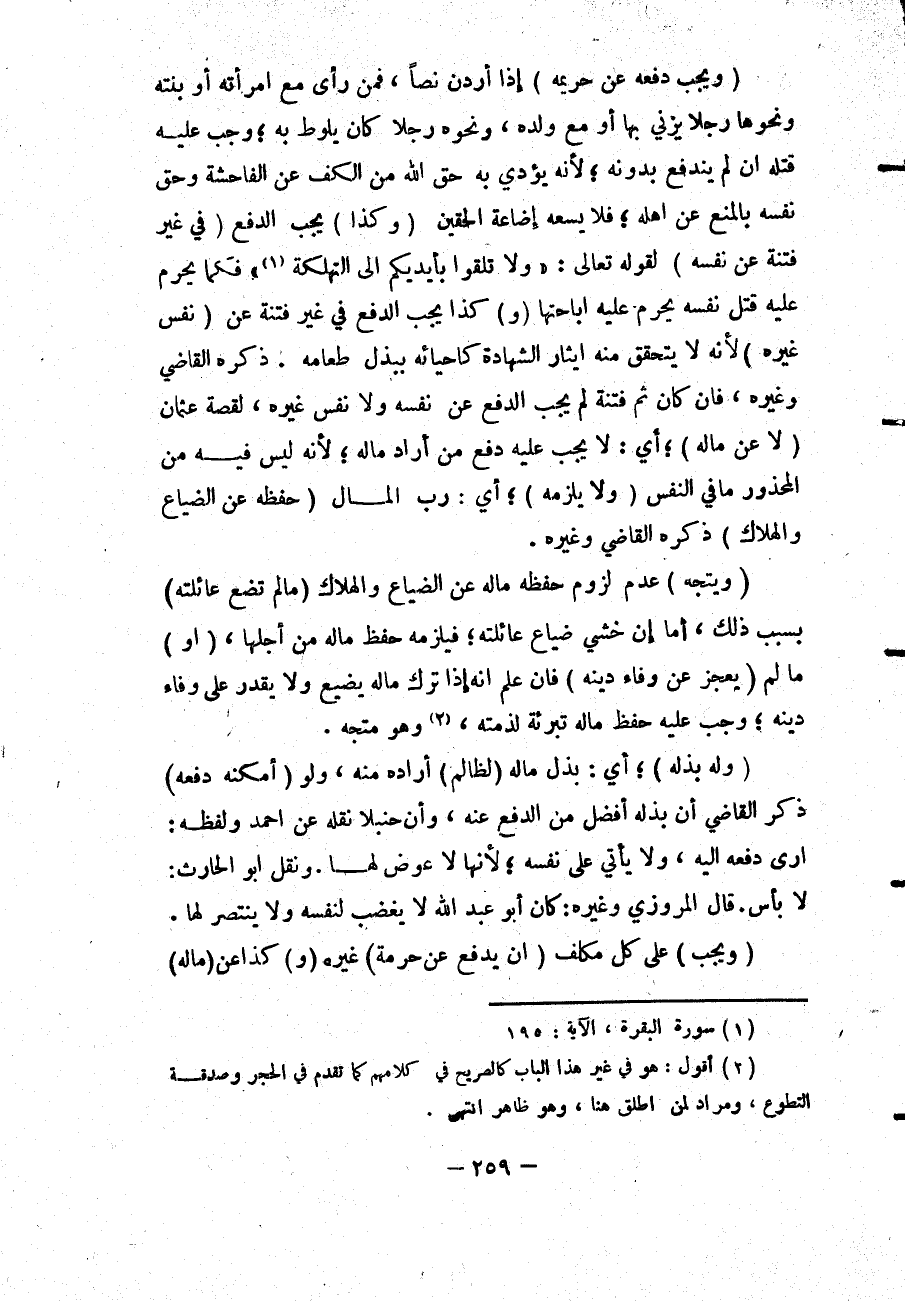 ( ويجب دفعه عن حريمه ) إذا أردن نصاً ، فمن رأى مع امرأته أو بنته
ونحوها رجلا يزني بها أو مع ولده ، ونحوه رجلا كان يلوط به ؛ وجب عليه
قتله ان لم يندفع بدونه ؛ لأنه يؤدي به حق الله من الكف عن الفاحشة وحق
نفسه بالمنع عن اهله ؛ فلا يسعه إضاعة الحقين ( وكذا ) يجب الدفع ( في غير
فتنة عن نفسه ) لقوله تعالى : « ولا تلقوا بأيديكم الى التهلكة (١) » فكما يحرم
عليه قتل نفسه يحرم عليه اباحتها (و) كذا يجب الدفع في غير فتنة عن ( نفس
غيره ) لأنه لا يتحقق منه ايثار الشهادة كاحيائه ببذل طعامه . ذكره القاضي
وغيره ، فان كان ثم فتنة لم يجب الدفع عن نفسه ولا نفس غيره ، لقصة عثمان
( لا عن ماله ) ؛ أي : لا يجب عليه دفع من أراد ماله ؛ لأنه ليس فيه من
المحذور مافي النفس ( ولا يلزمه ) ؛ أي : رب المال ( حفظه عن الضياع
والهلاك ) ذكره القاضي وغيره .
( ويتجه ) عدم لزوم حفظه ماله عن الضياع والهلاك (مالم تضع عائلته)
بسبب ذلك ، أما إن خشي ضياع عائلته ؛ فيلزمه حفظ ماله من أجلها ، ( او )
ما لم ( يعجز عن وفاء دينه ) فان علم انه إذا ترك ماله يضيع ولا يقدر على وفاء
دينه ؛ وجب عليه حفظ ماله تبرئة لذمته ، (٢) وهو متجه .
( وله بذله ) ؛ أي : بذل ماله (لظالم) أراده منه ، ولو ( أمكنه دفعه)
ذكر القاضي أن بذله أفضل من الدفع عنه ، وأن حنبلا نقله عن احمد ولفظه :
ارى دفعه اليه ، ولا يأتي على نفسه ؛ لأنها لا عوض لها . ونقل ابو الحارث :
لا بأس . قال المروزي وغيره : كان أبو عبد الله لا يغضب لنفسه ولا ينتصر لها .
( ويجب ) على كل مكلف ( ان يدفع عن حرمة) غيره (و) كذا عن (ماله)
(١) سورة البقرة ، الآية : ١٩٥
(٢) أقول : هو في غير هذا الباب كالصريح في كلامهم كما تقدم في الحجر وصدقة
التطوع ، ومراد لمن اطلق هنا ، وهو ظاهر انتهى .
— ٢٥٩ —